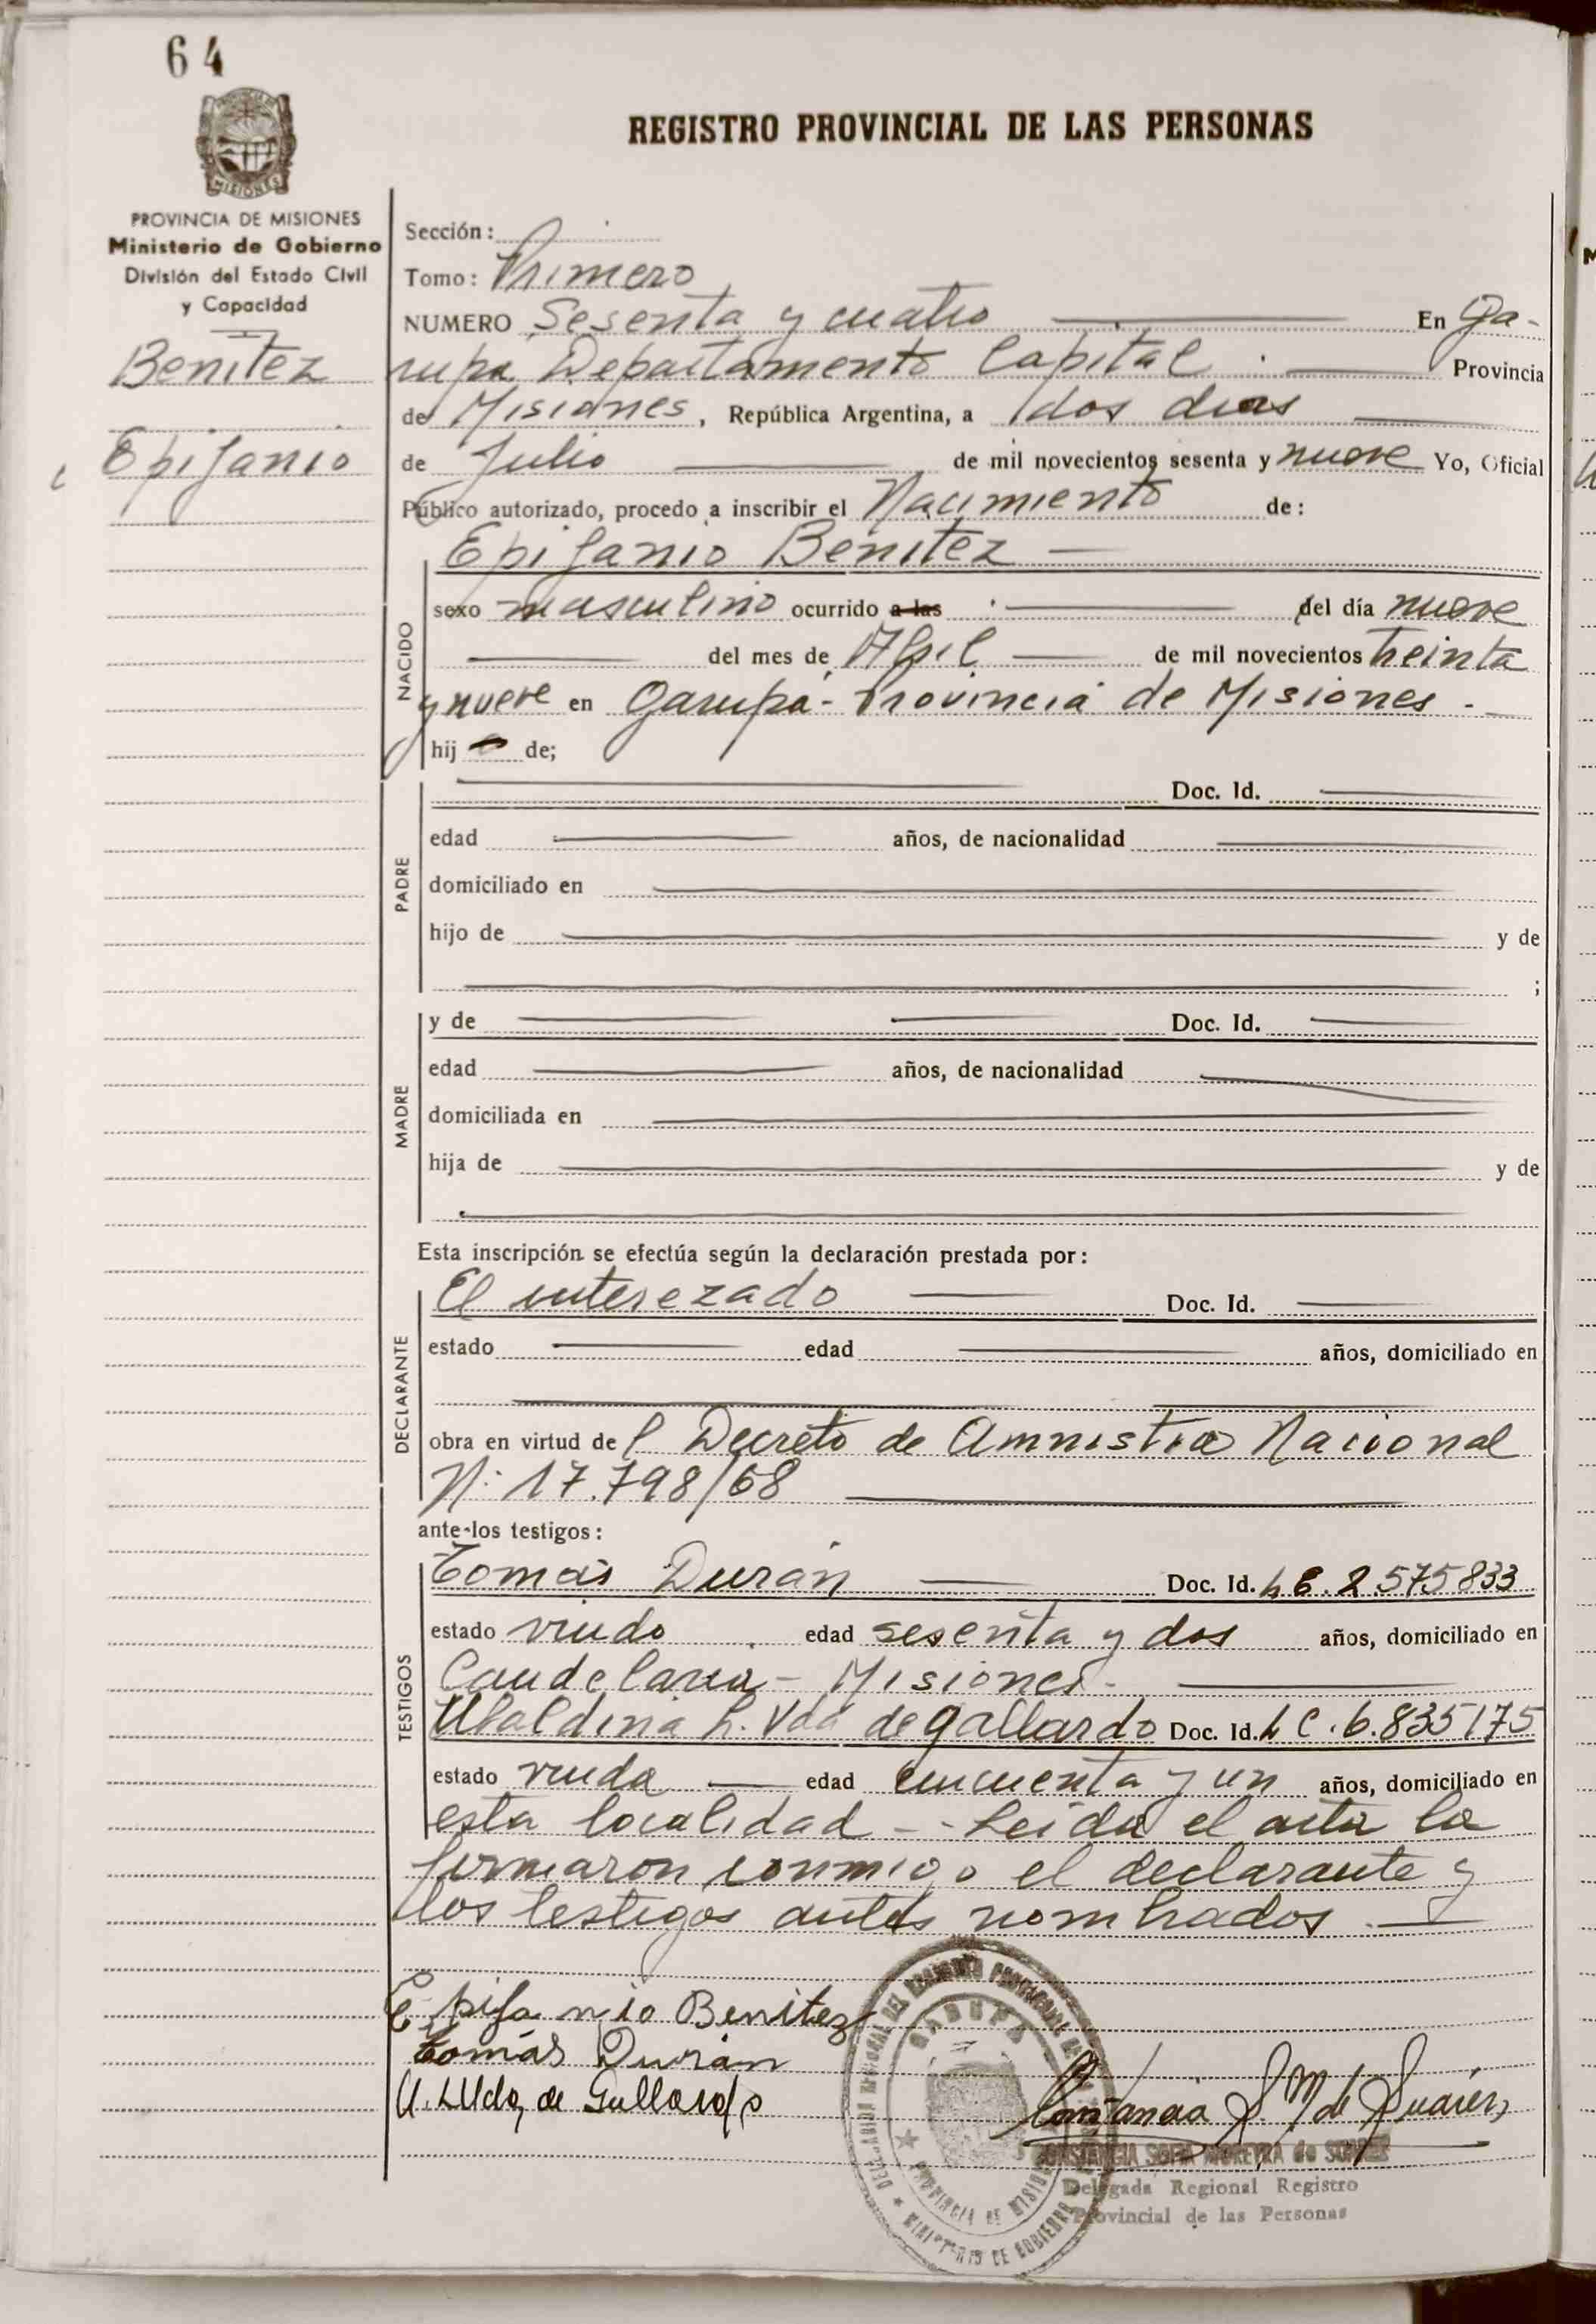 64
PROVINCIA DE MISIONES
Ministerio de Gobierno
División del Estado Civil
y Capacidad
Benitez
Epifanio
REGISTRO PROVINCIAL DE LAS PERSONAS
Sección:
Tomo: Primero
NUMERO Sesenta y cuatro En Ga-
rupa Departamento Capital Provincia
de Misiones, República Argentina, a dos dias
de Julio de mil novecientos sesenta y nueve Yo, Oficial
Público autorizado, procedo a inscribir el Nacimiento de:
NACIDO
Epifanio Benitez
sexo masculino ocurrido a las del día nueve
del mes de Abril de mil novecientos treinta
y nueve en Garupá - Provincia de Misiones.
hijo de;
PADRE
Doc. Id.
edad años, de nacionalidad
domiciliado en
hijo de y de
;
MADRE
y de Doc. Id.
edad años, de nacionalidad
domiciliada en
hija de y de
Esta inscripción se efectúa según la declaración prestada por:
DECLARANTE
El interezado Doc. Id.
estado edad años, domiciliado en
obra en virtud del Decreto de Amnistia Nacional
N: 17.798/68
ante los testigos:
TESTIGOS
Tomás Durán Doc. Id. L E. 2.575833
estado viudo edad sesenta y dos años, domiciliado en
Candelaria - Misiones.
Ubaldina L. Vda de gallardo Doc. Id. L C. 6.835175
estado viuda edad cincuenta y un años, domiciliado en
esta localidad -- Leida el acta la
firmaron conmigo el declarante y
los testigos antes nombrados.
Epifanio Benitez
Tomás Durán
U. L Vda, de Gallardo
Constancia S. M de Suárez
CONSTANCIA SOFIA MOREYRA de SUAREZ
Delegada Regional Registro
Provincial de las Personas
GARUPA
PROVINCIA DE MISIONES
MINISTERIO DE GOBIERNO